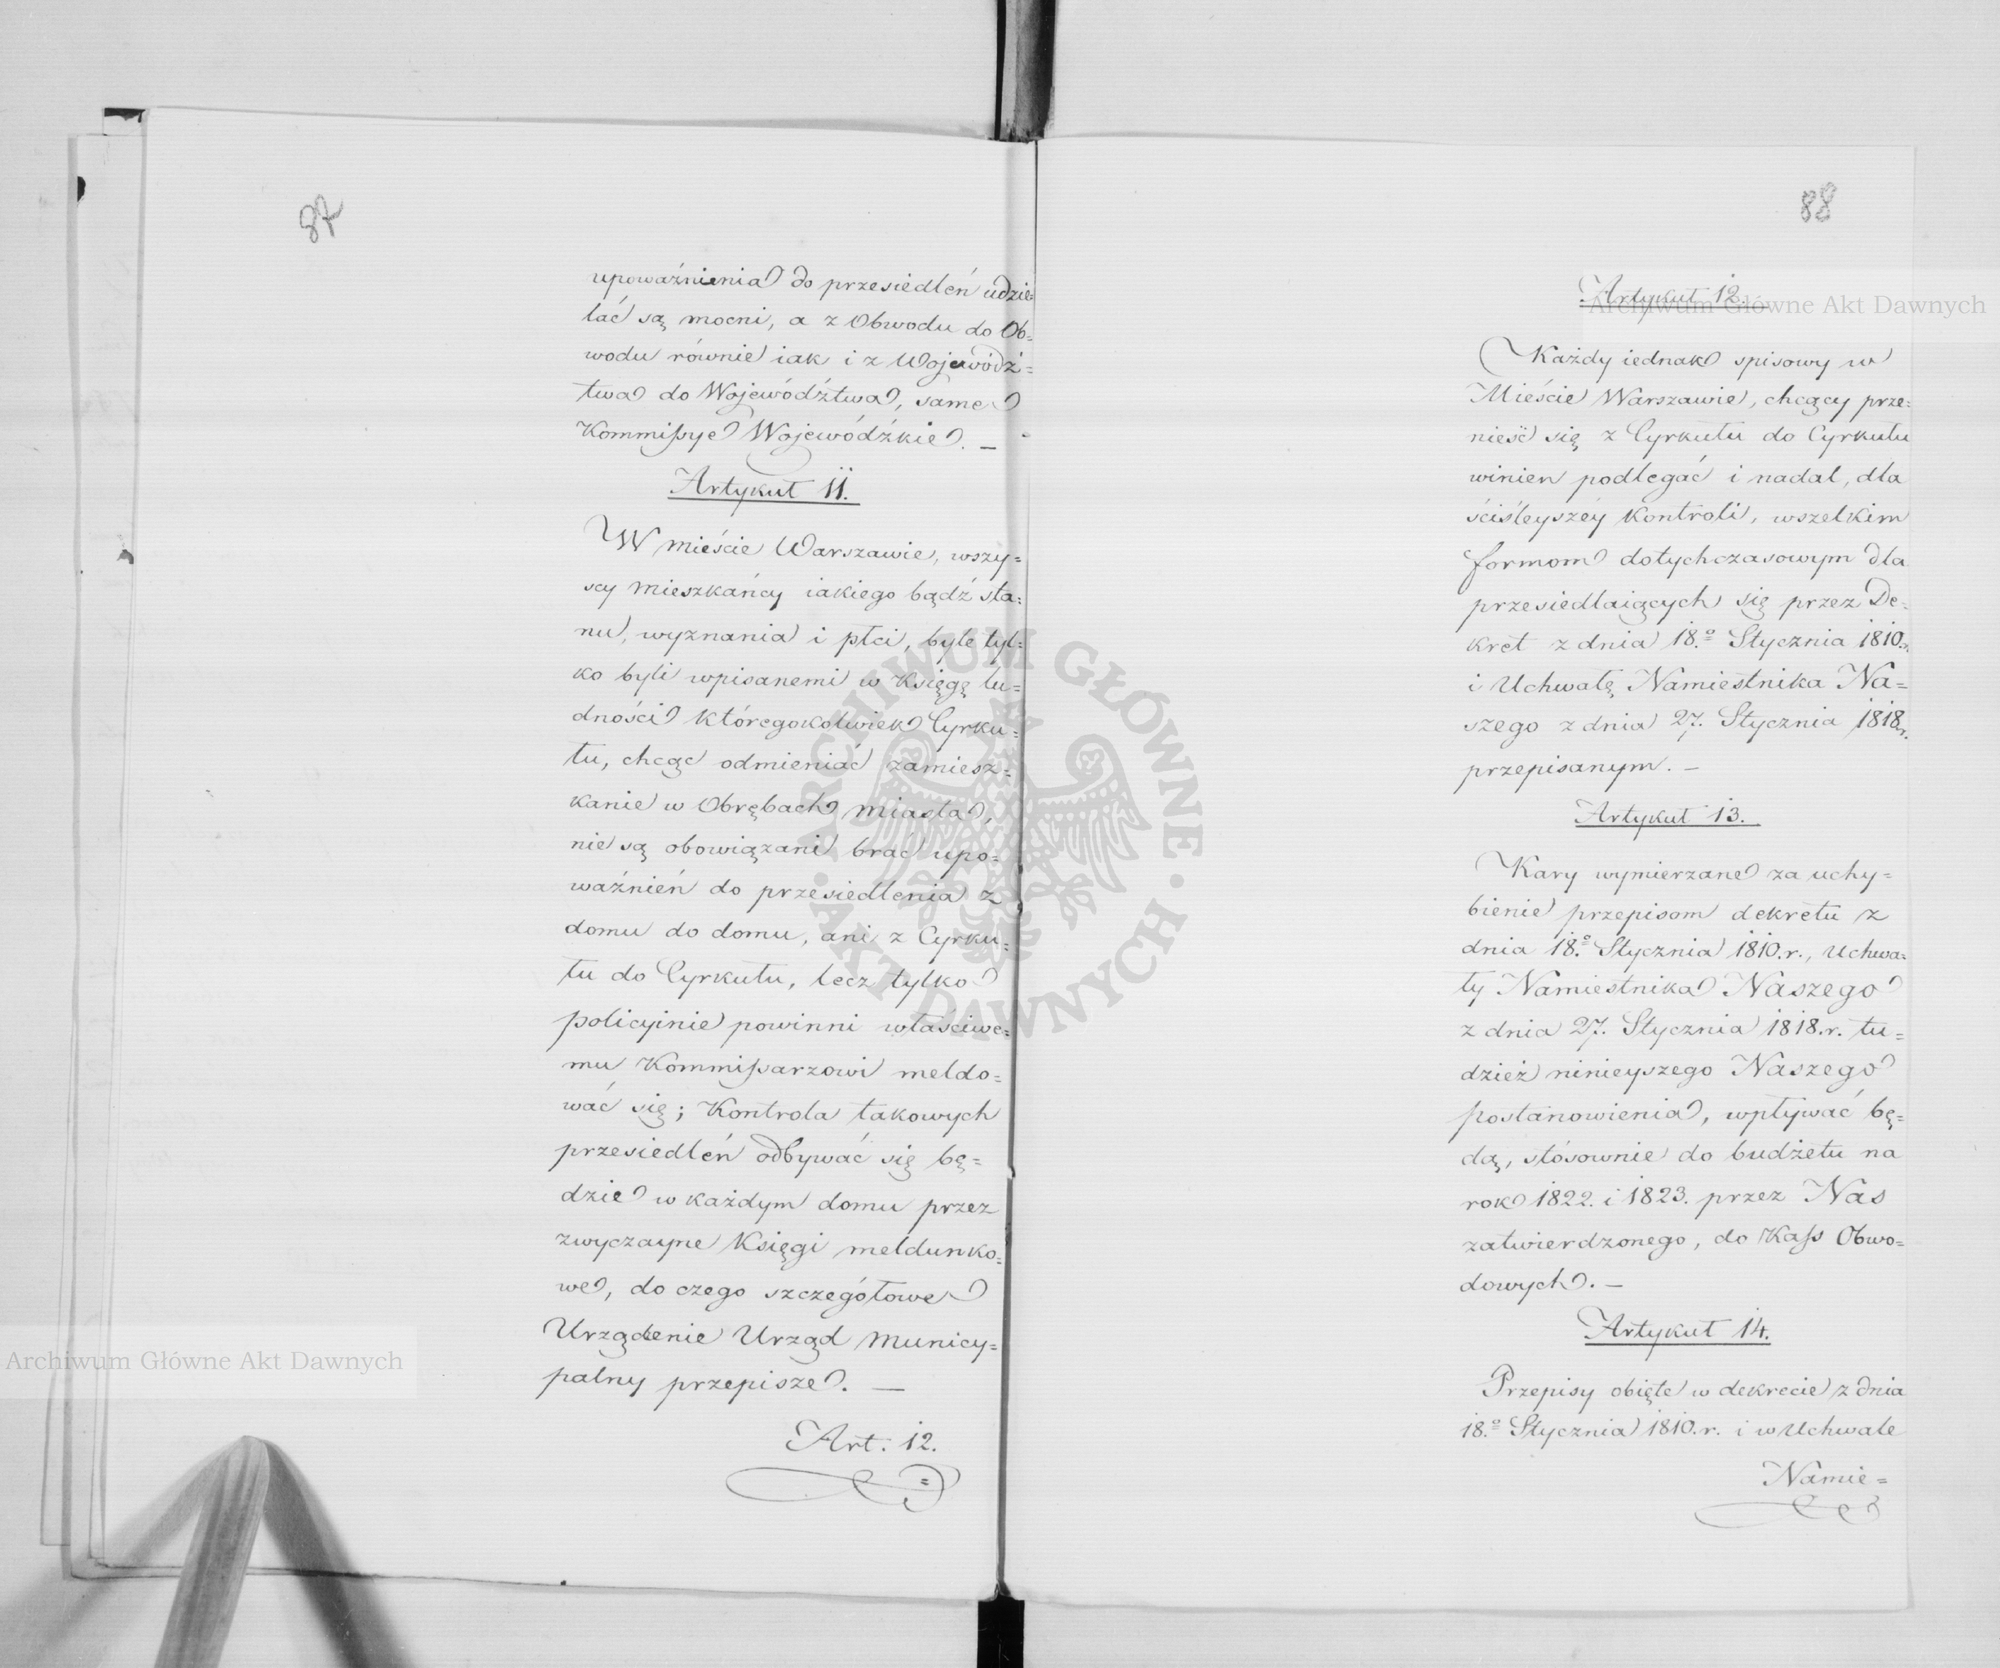 87
upoważnienia do przesiedleń udzie=
lać są mocni, a z Obwodu do Ob=
wodu równie iak i z Wojewódz=
twa do Województwa, same
Kommißye Wojewódzkie. —
Artykuł 11.
W mieście Warszawie, wszy=
scy mieszkańcy iakiego bądź sta=
nu, wyznania i płci, byle tyl=
ko byli wpisanemi w Księgę lu=
dności któregokolwiek Cyrku=
łu, chcąc odmieniać zamiesz=
kanie w Obrębach miasta,
nie są obowiązani brać upo=
ważnień do przesiedlenia z
domu do domu, ani z Cyrku=
łu do Cyrkułu, lecz tylko
policyinie powinni właściwe=
mu Kommißarzowi meldo=
wać się; Kontrola takowych
przesiedleń odbywać się bę=
dzie w każdym domu przez
zwyczayne Księgi meldunko=
we, do czego szczegółowe
Urządzenie Urząd Municy=
palny przepisze. —
Art. 12.
88
Artykuł 12.
Każdy iednak spisowy w
Mieście Warszawie, chcący prze=
nieść się z Cyrkułu do Cyrkułu
winien podlegać i nadal, dla
ściśleyszéy kontroli, wszelkim
formom dotychczasowym dla
przesiedlaiących się przez De=
kret z dnia 18.º Stycznia 1810.r.
i Uchwałę Namiestnika Na=
szego z dnia 27. Stycznia 1818.r.
przepisanym. —
Artykuł 13.
Kary wymierzane za uchy=
bienie przepisom dekretu z
dnia 18.º Stycznia 1810.r., Uchwa=
ły Namiestnika Naszego
z dnia 27. Stycznia 1818.r. tu=
dzież ninieyszego Naszego
postanowienia, wpływać bę=
dą, stósownie do budżetu na
rok 1822. i 1823. przez Nas
zatwierdzonego, do Kaß Obwo=
dowych. —
Artykuł 14.
Przepisy obięte w dekrecie z dnia
18.º Stycznia 1810.r. i w Uchwale
Namie=
Archiwum Główne Akt Dawnych
Archiwum Główne Akt Dawnych
ARCHIWUM GŁÓWNE · AKT DAWNYCH ·